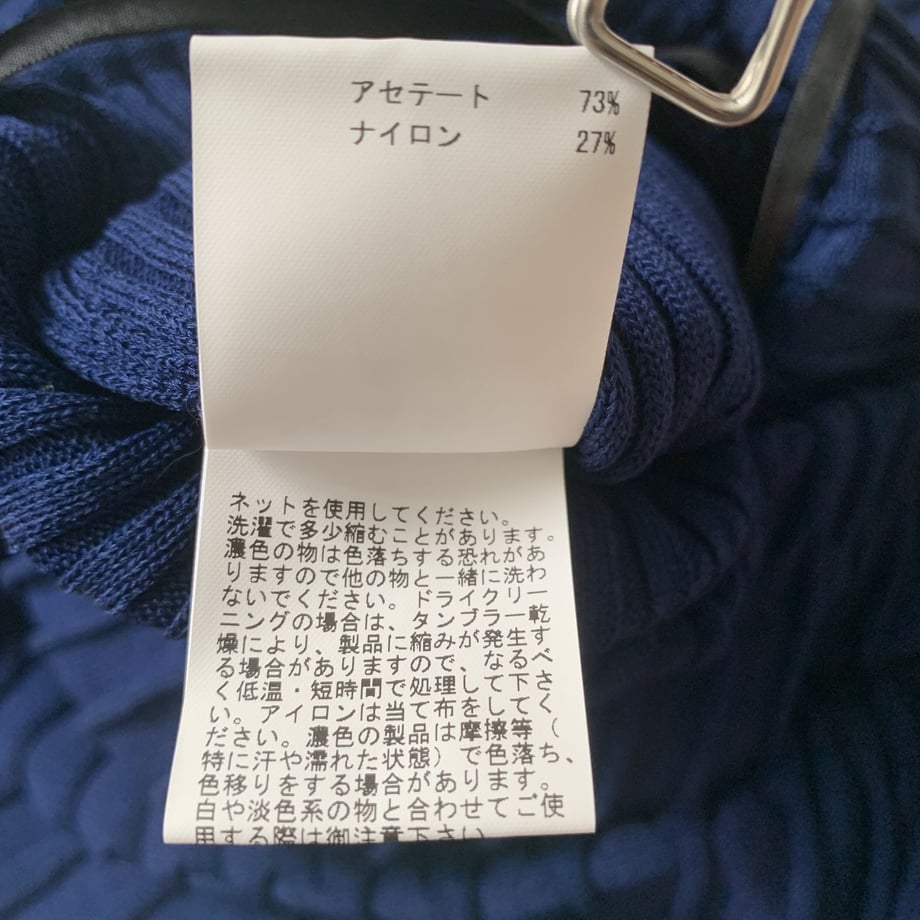 アセテート 73%
ナイロン 27%
ネットを使用してください。
洗濯で多少縮むことがあります。
濃色の物は色落ちする恐れがあ
りますので他の物と一緒に洗わ
ないでください。ドライクリー
ニングの場合は、タンブラー乾
燥により、製品に縮みが発生す
る場合がありますので、なるべ
く低温・短時間で処理して下さ
い。アイロンは当て布をしてく
ださい。濃色の製品は摩擦等（
特に汗や濡れた状態）で色落ち、
色移りをする場合があります。
白や淡色系の物と合わせてご使
用する際は御注意下さい